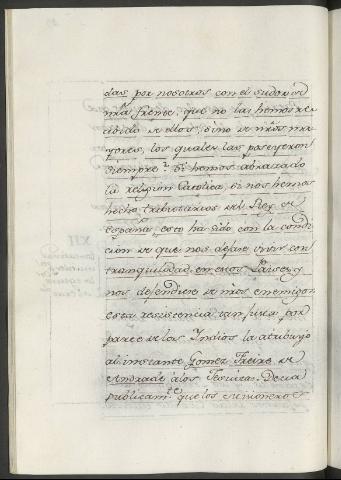 das por nosotros con el sudor de
nr̃a frente, que no las hemos re-
cibido de ellos, sino de nr̃os ma-
yores, los quales las poseyeron
siempre? Si hemos abrazado
la religion Catolica, si nos hemos
hecho tributarios del Rey de
España, esto ha sido con la condi-
cion de que nos dejase vivir con
tranquilidad en esos Paises, y
nos defendiese de nr̃os enemigos
esta resistencia tan justa por
parte de los Indios la atribuyó
al instante Gomez Freire de
Andrade á los Jesuitas. Decia
publicam.te que los misioneros
XII